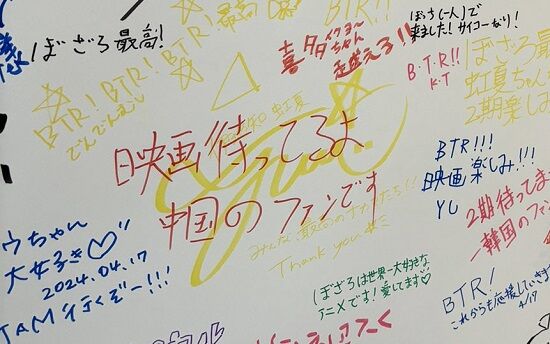 ぼざろ最高!
BTR! BTR! BTR!
最高
BTR!
喜多
イクヨー
ちゃん
超越えろ!!
ぼっち(一人)で
来ました!サイコーなり!
B・T・R!!
K・T
ぼざろ最高
虹夏ちゃん
2期楽しみ
虹夏
映画待ってるよ
中国のファンです
BTR!!!
映画楽しみ!!!
YU
2期待ってま
韓国のファ
みんな、最高の
Thank you
ウちゃん
大好き♡
2024.04.17
JAM行くぞー!!!
ぼざろは世界一大好きな
アニメです!愛してます♡
BTR!
これからも応援しています
4/17